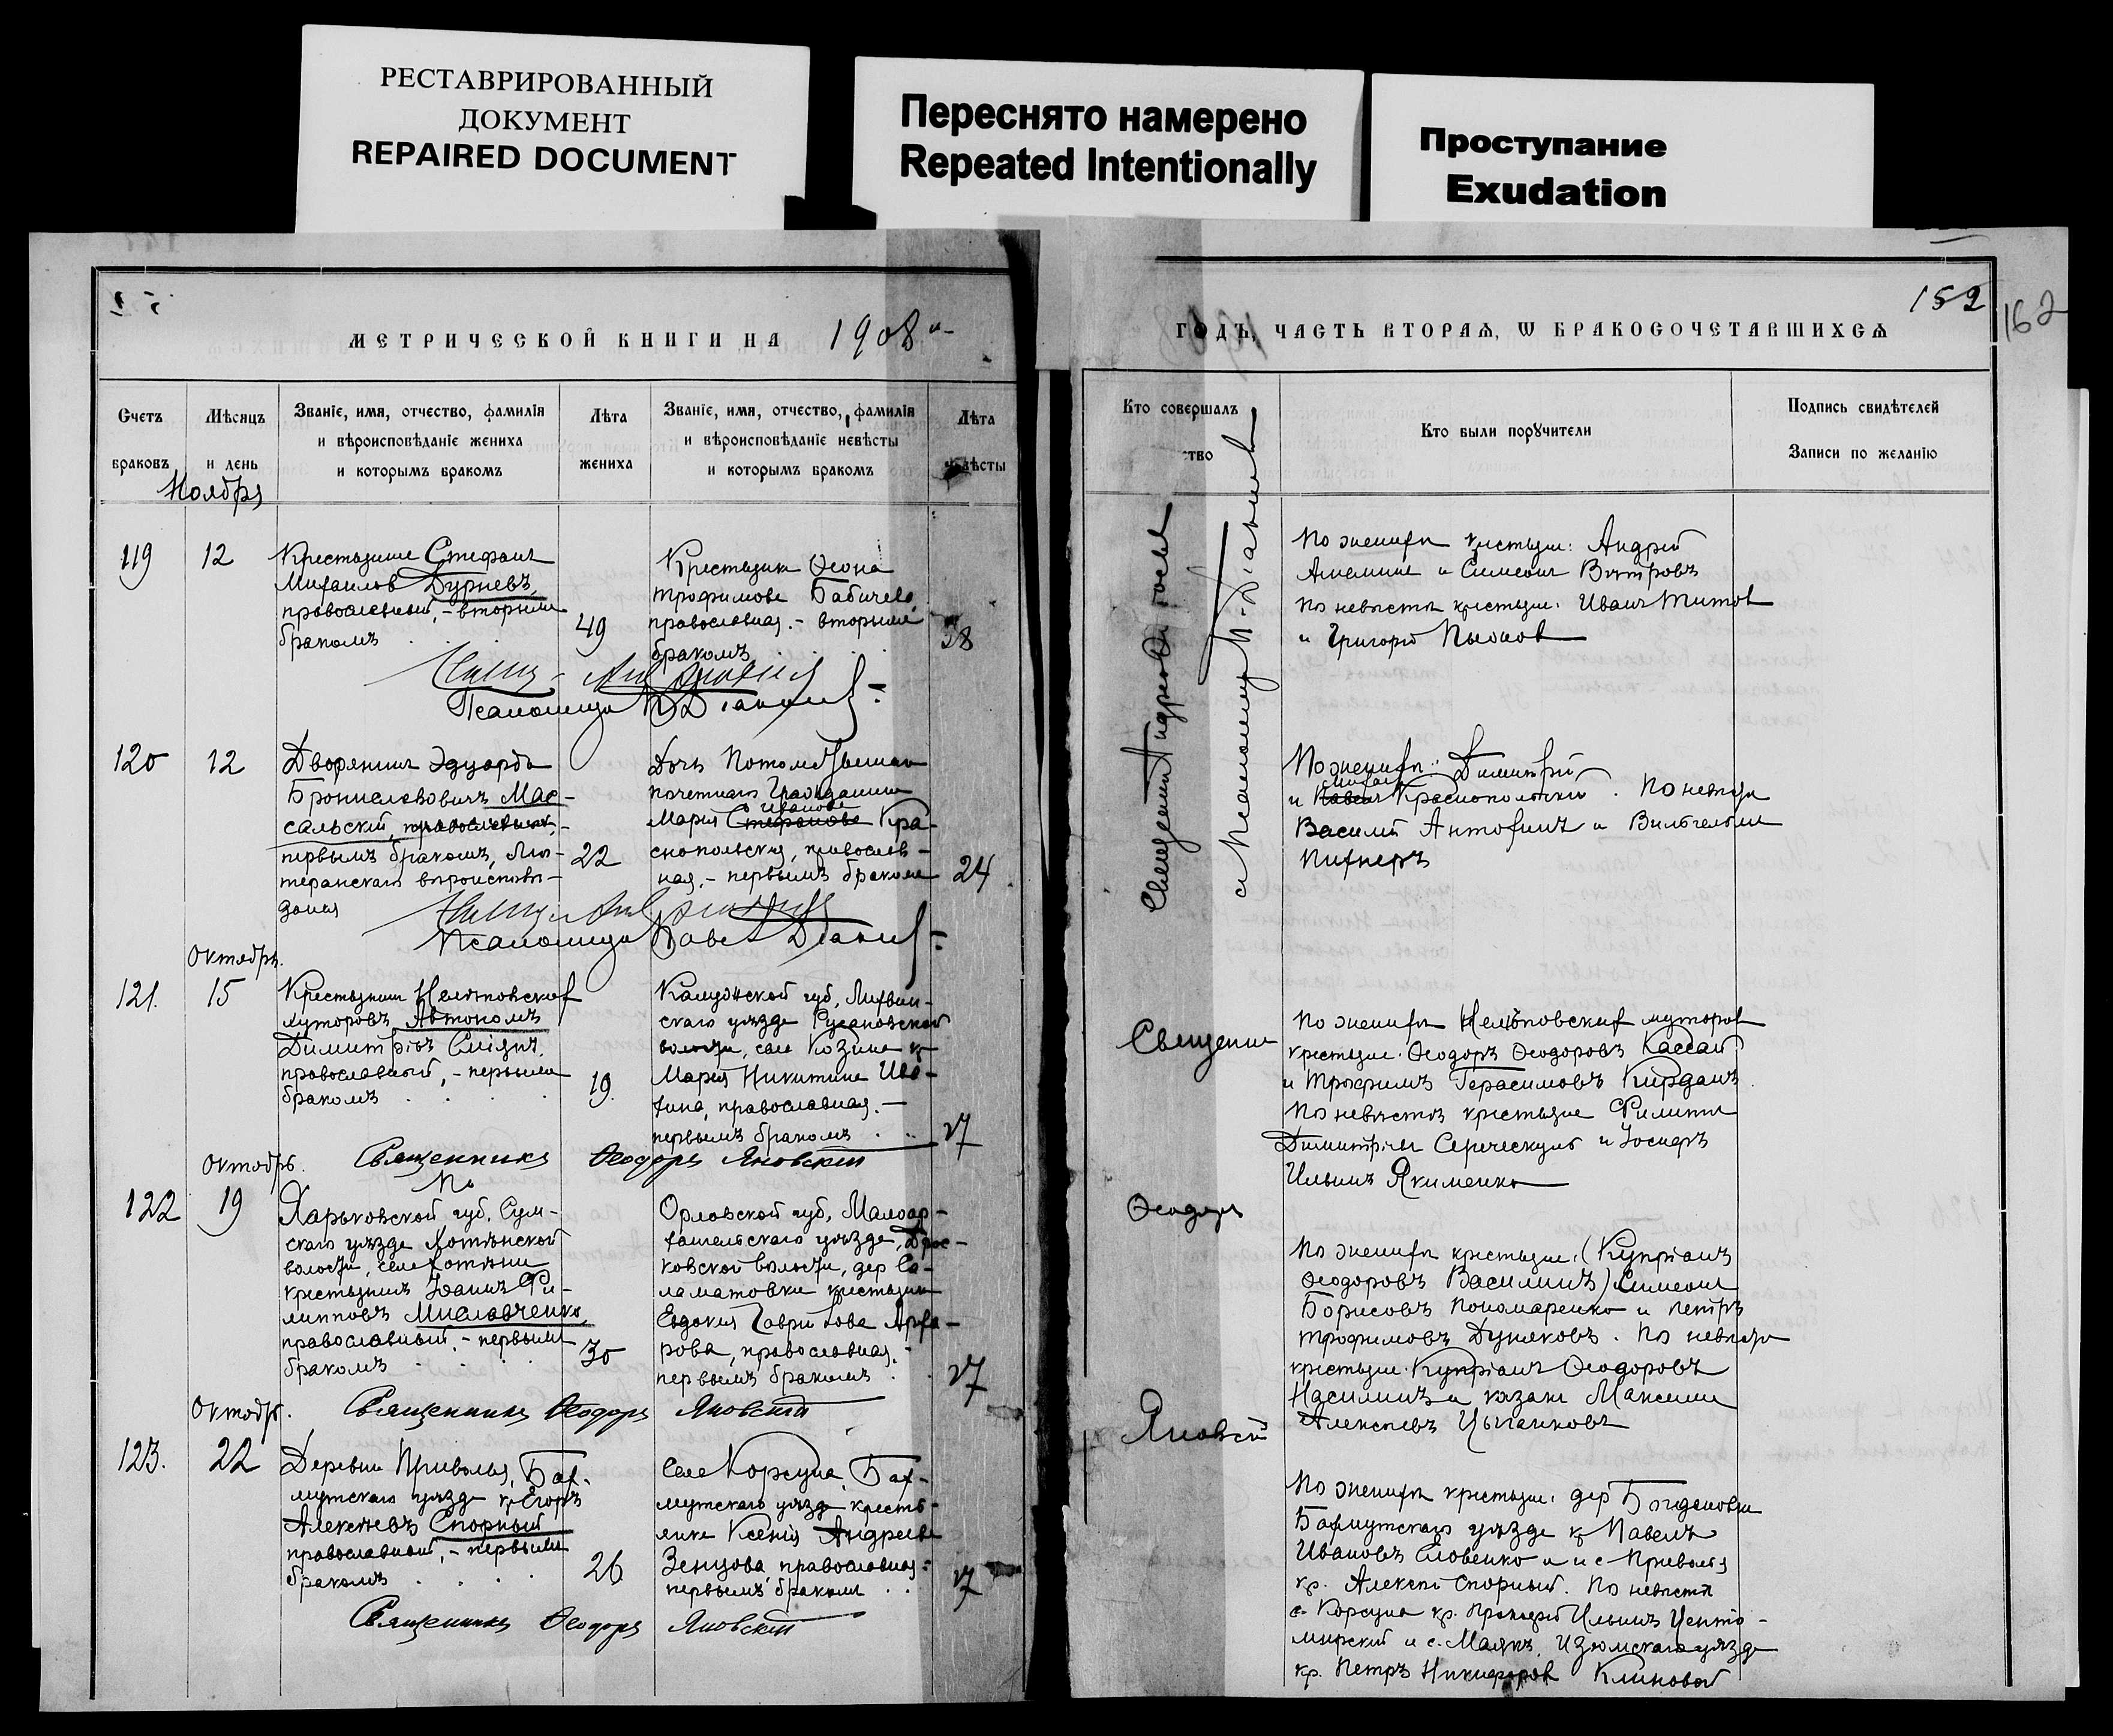 РЕСТАВРИРОВАННЫЙ
ДОКУМЕНТ
REPAIRED DOCUMENT
Переснято намерено
Repeated Intentionally
Проступание
Exudation
МЕТРИЧЕСКОЙ КНИГИ НА 1908 й
Счетъ
браковъ
Мѣсяцъ
и день
Званіе, имя, отчество, фамилія
и вѣроисповѣданіе жениха
и которымъ бракомъ
Лѣта
жениха
Званіе, имя, отчество, фамилія
и вѣроисповѣданіе невѣсты
и которымъ бракомъ
Лѣта
невѣсты
Ноября
119
12
Крестьянинъ Стефанъ
Михаиловъ Дурневъ,
православный, - вторымъ
бракомъ
49
Крестьянка Ѳеона
Трофимова Бабичева,
православная. - вторымъ
бракомъ
38
120
12
Дворянинъ Эдуардъ
Брониславовичъ Мас-
сальскій, православный,
первымъ бракомъ, Лю-
теранскаго вѣроисповѣ-
данія
22
Дочь Потомственнаго
почетнаго Гражданина
Иванова
Марія Стефанова Кра-
снопольская, православ-
ная, - первымъ бракомъ
24
Псаломщикъ Павелъ
Октябрь.
121.
15
Крестьянинъ Нелѣповскихъ
хуторовъ Автономъ
Димитріевъ
православный, - первымъ
бракомъ
19.
Калужской губ., Лихвин-
скаго уѣзда
волости, села Козина кр
Марія Никитина
православная. -
первымъ бракомъ
17
Священникъ Ѳеодоръ Яновскій
Октябрь.
122
19
Харьковской губ. Сум-
скаго уѣзда Хотѣнской
волости, села Хотѣни
крестьянинъ Іоаннъ Фи-
липповъ Миславченко,
православный, - первымъ
бракомъ
30
Орловской губ., Малоар-
хангельскаго уѣзда,
ковской волости, дер Са-
ламатовки крестьянка
Евдокія Гаврилова
рова, православная. -
первымъ бракомъ
17
Священникъ Ѳеодоръ Яновскій
Октябр.
123.
22
Деревни Приволья, Бах-
мутскаго уѣзда кр Егоръ
Алексѣевъ Спорный
православный, - первымъ
бракомъ
26
Села Корсуна, Бах-
мутскаго уѣзда кресть-
янка Ксенія Андреева
Зенцова, православная =
первымъ бракомъ
17
Священникъ Ѳеодоръ Яновскій
152
162
ГОДЪ, ЧАСТЬ ВТОРАѦ, Ѡ БРАКОСОЧЕТАВШИХСѦ
Кто совершалъ
ство
Кто были порꙋчители
Подпись свидѣтелей
Записи по желанію
По женихѣ крестьяне: Андрей
и Симеонъ Вѣтровъ
по невѣстѣ крестьяне: Иванъ Титовъ
и Григорій
По женихѣ: Димитрій
и Павелъ Краснопольскій. По невѣстѣ
Василій и Вильгельмъ
Священникъ
Ѳеодоръ
Яновскій
По женихѣ Нелѣповскихъ хуторовъ
крестьяне: Ѳеодоръ Ѳеодоровъ Кассай
и Трофимъ Герасимовъ Кирданъ.
По невѣстѣ крестьяне Филиппъ
Димитріевъ и Іосифъ
Ильинъ Якименко
По женихѣ крестьяне: (Купріанъ
Ѳеодоровъ Василинъ) Симеонъ
Борисовъ Пономаренко и Петръ
Трофимовъ Дуняковъ. По невѣстѣ
крестьяне: Купріанъ Ѳеодоровъ
и казакъ Максимъ
Алексѣевъ Цыганковъ
По женихѣ крестьяне: дер Богдановки
Бахмутскаго уѣзда кр Павелъ
Ивановъ Еловенко и с Приволья
кр. Алексѣй Спорный. По невѣстѣ
с. Корсуна кр. Прокофій Ильинъ
мирскій и с. Маякъ, Изюмскаго уѣзда
кр. Петръ Никифоровъ Клиновой